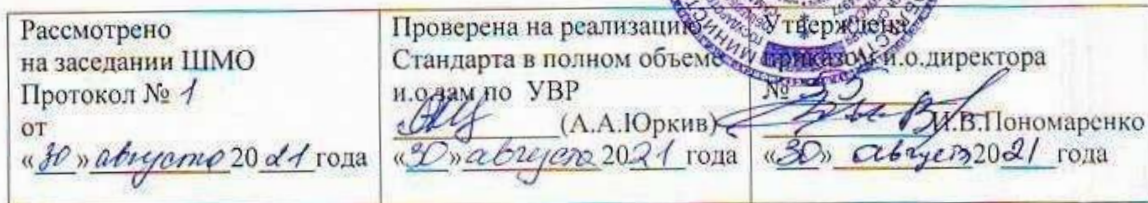 Рассмотрено
на заседании ШМО
Протокол № 1
от
«30» августа 2021 года
Проверена на реализацию
Стандарта в полном объеме
и.о.зам по УВР
(А.А.Юркив)
«30» августа 2021 года
Утверждена
приказом и.о.директора
№
И.В.Пономаренко
«30» август 2021 года